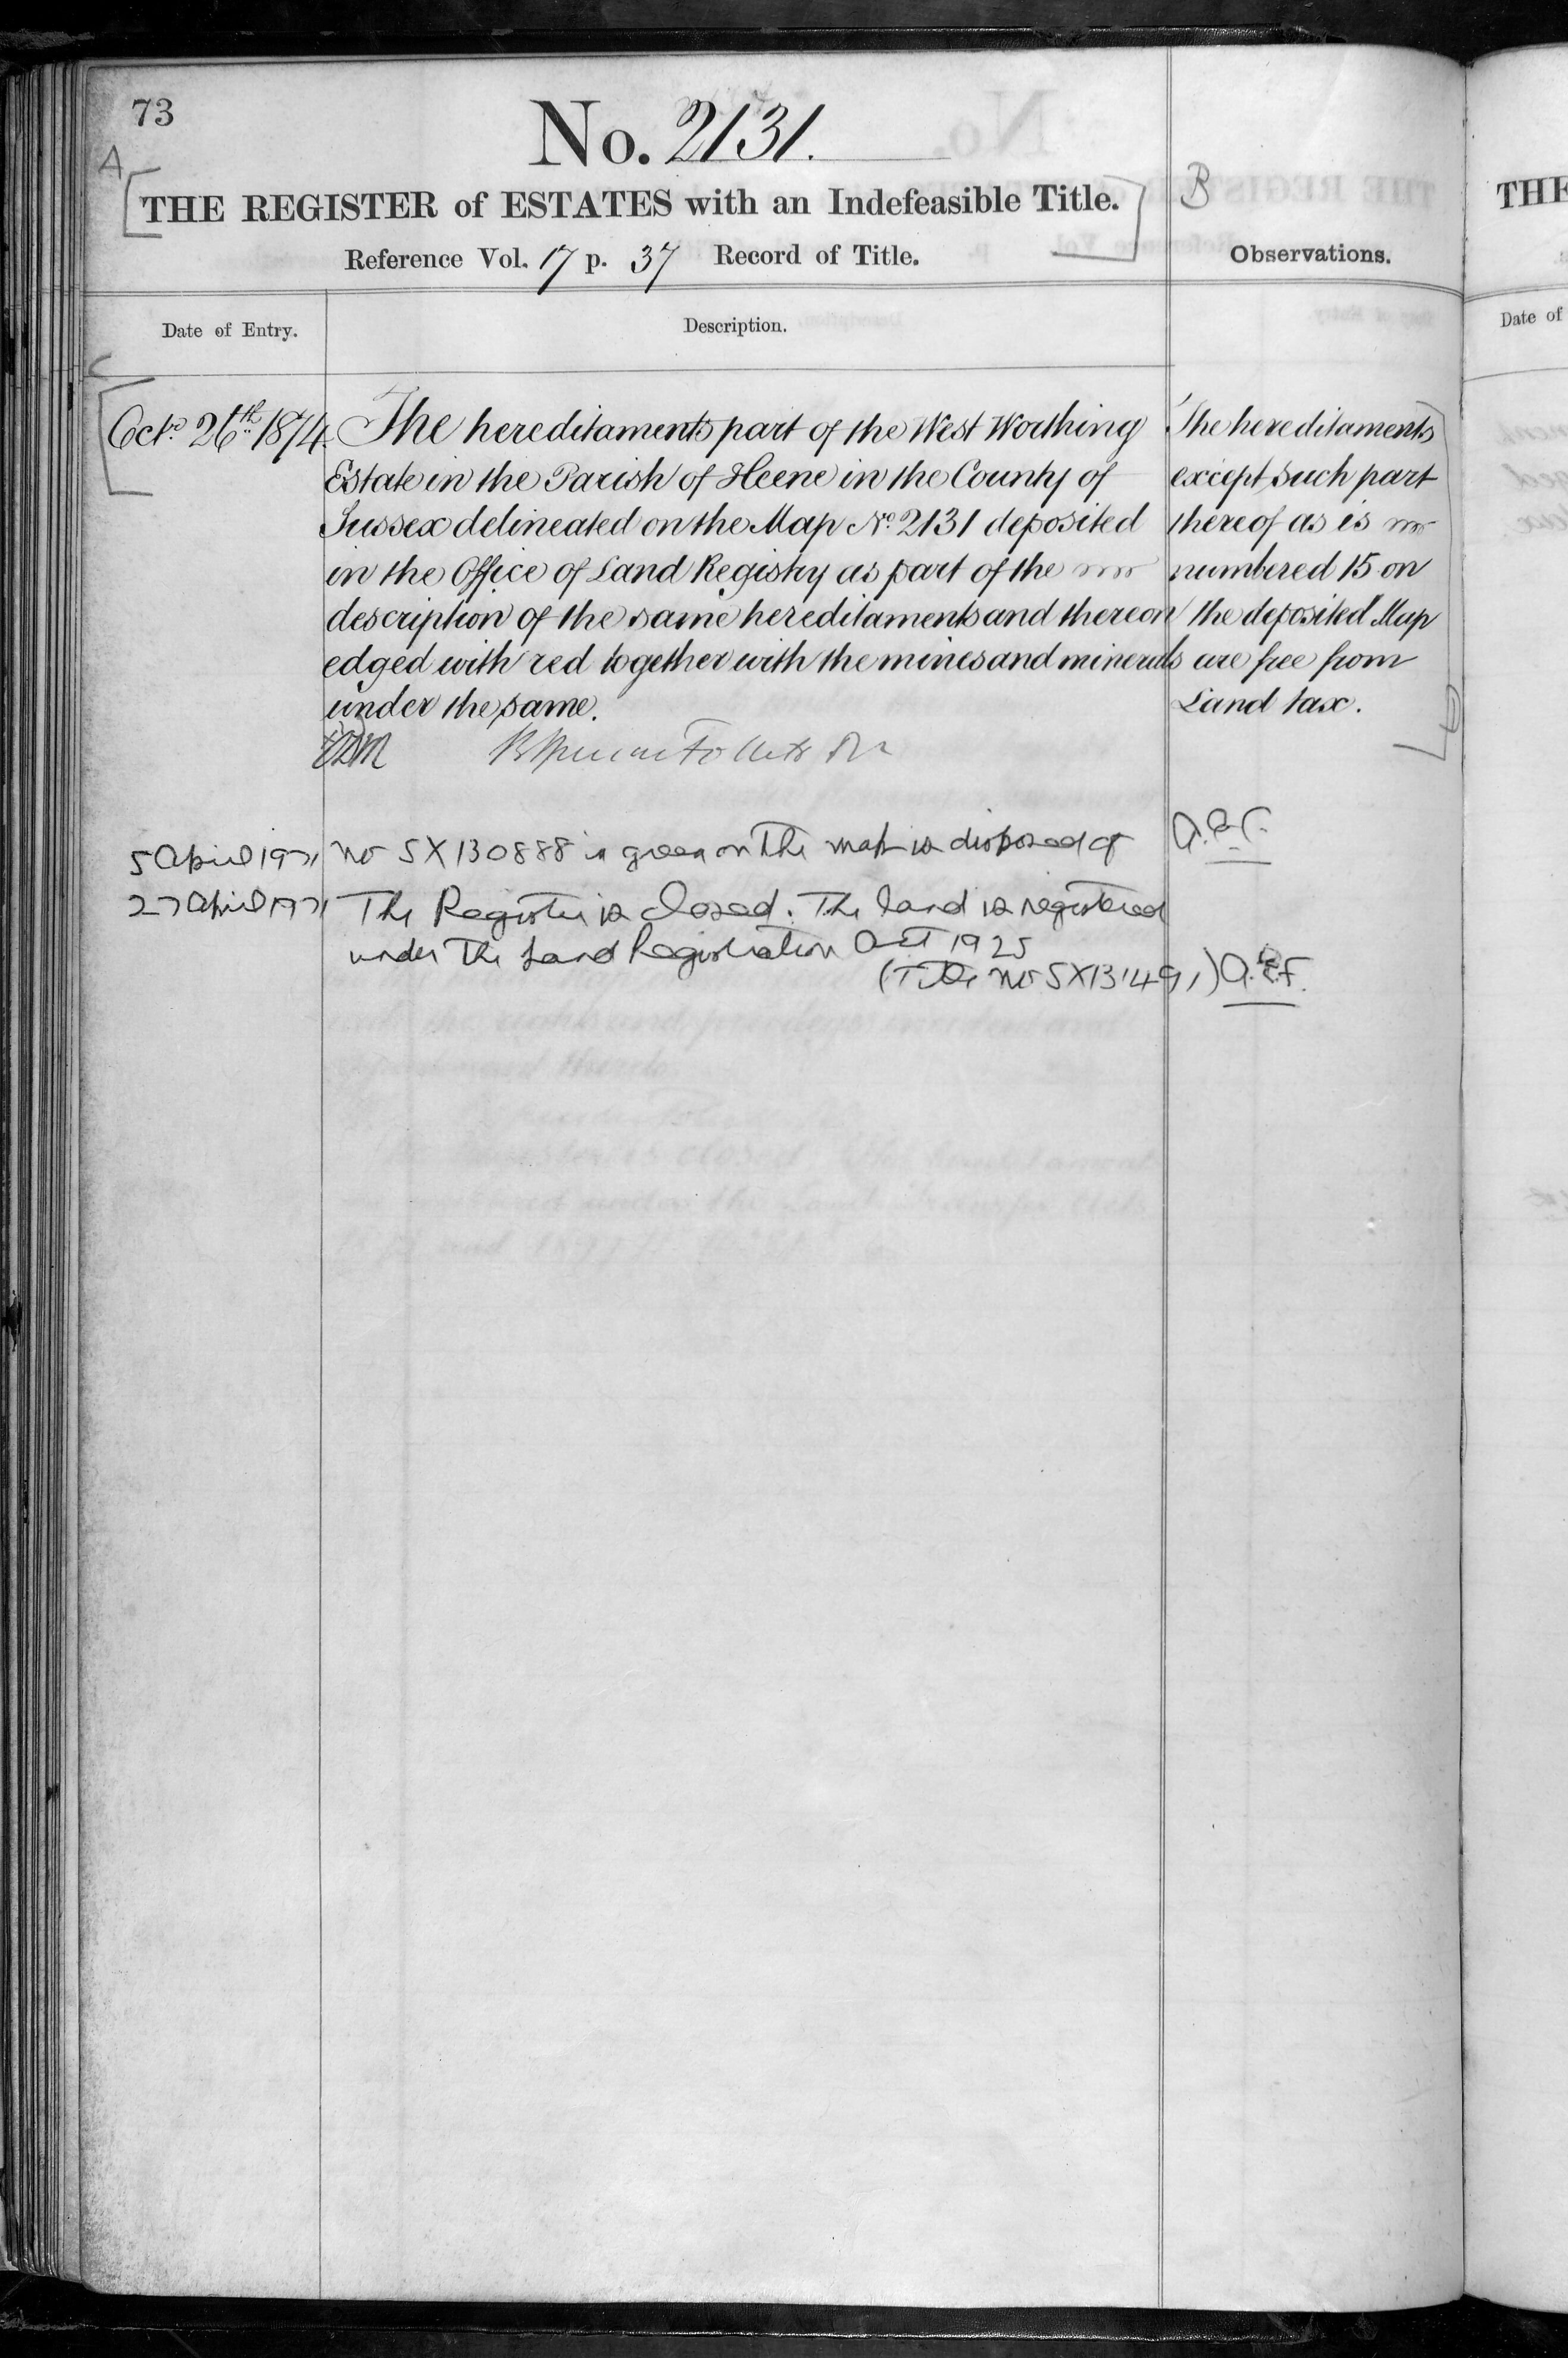 73
No. 2131.
A
THE REGISTER of ESTATES with an Indefeasible Title.
B
Reference Vol. 17 p. 37 Record of Title.
Observations.
Date of Entry.
Description.
C
Octr. 26th. 1874.
The hereditaments part of the West Worthing
Estate in the Parish of Heene in the County of
Sussex delineated on the Map No. 2131 deposited
in the Office of Land Registry as part of the
description of the same hereditaments and thereon
edged with red together with the mines and minerals
under the same.
The hereditaments
except such part
thereof as is
numbered 15 on
the deposited Map
are free from
Land tax.
D
5 April 1971
No SX130888 in green on the map is disposed of
27 April 1971
The Register is closed. The land is registered
under the Land Registration Act 1925
(Title No SX131491) A.E.F.
THE
Date of